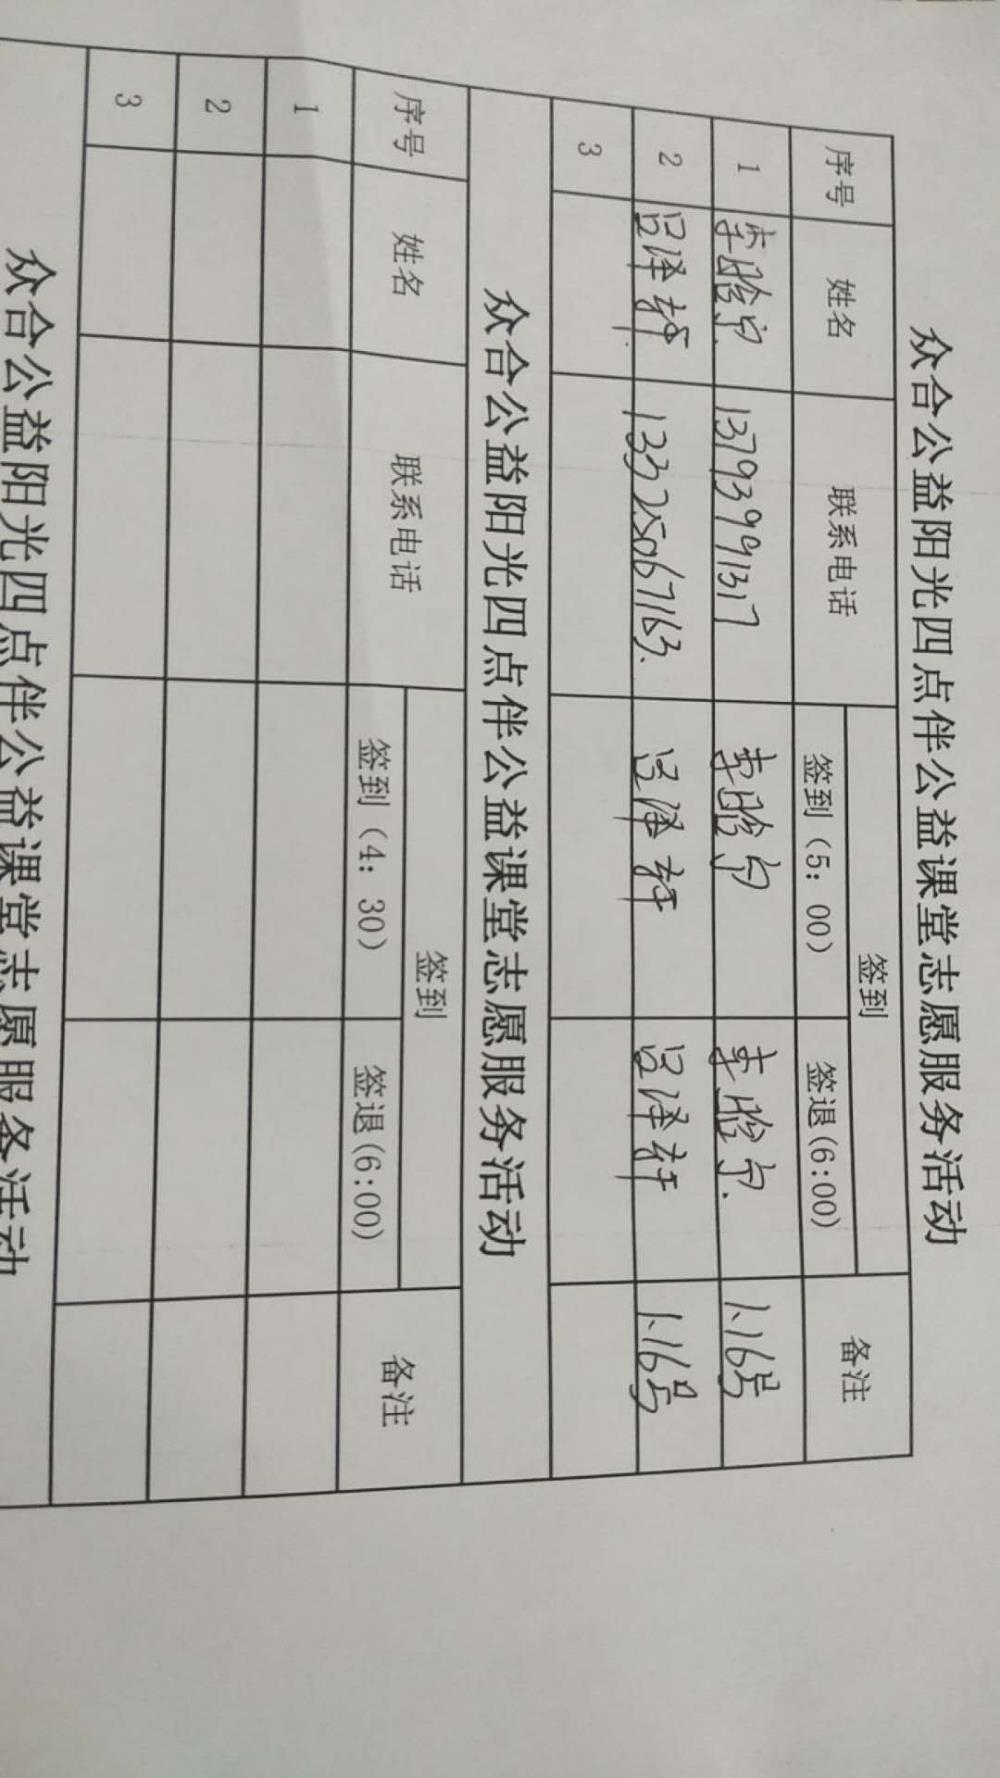 众合公益阳光四点伴公益课堂志愿服务活动
序号 姓名 联系电话 签到 备注
签到(5：00) 签退(6:00)
1 李晗宁 13793991317 李晗宁 李晗宁. 1.16号
2 吕泽轩 13325067163. 吕泽轩 吕泽轩 1.16号
3
众合公益阳光四点伴公益课堂志愿服务活动
序号 姓名 联系电话 签到 备注
签到(4：30) 签退(6:00)
1
2
3
众合公益阳光四点伴公益课堂志愿服务活动